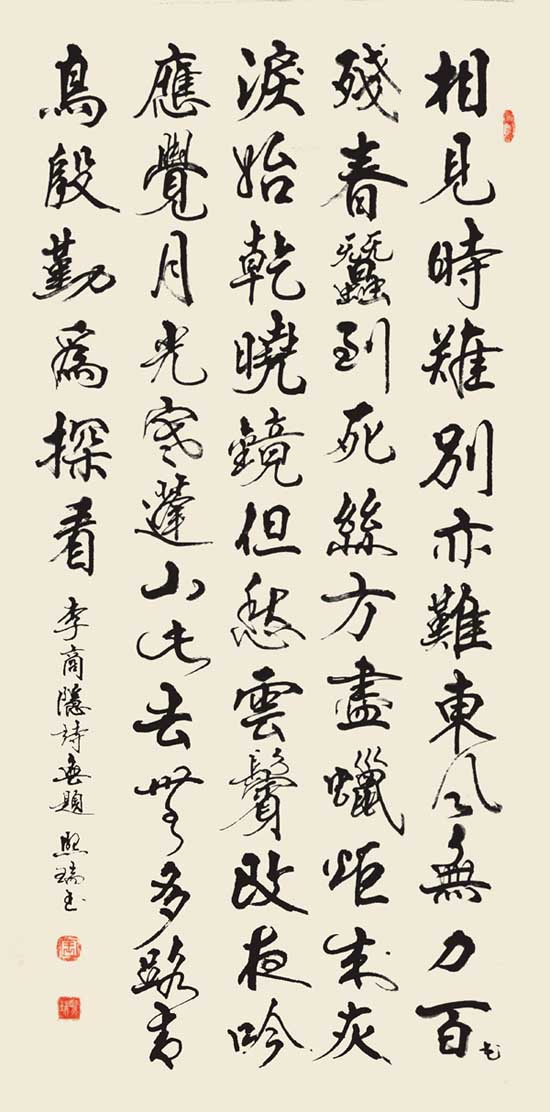 相見時難別亦難東風無力百花
殘春蠶到死絲方盡蠟炬成灰
淚始乾曉鏡但愁雲鬢改夜吟
應覺月光寒蓬山此去無多路青
鳥殷勤爲探看 李商隱詩無題 熙瑞書